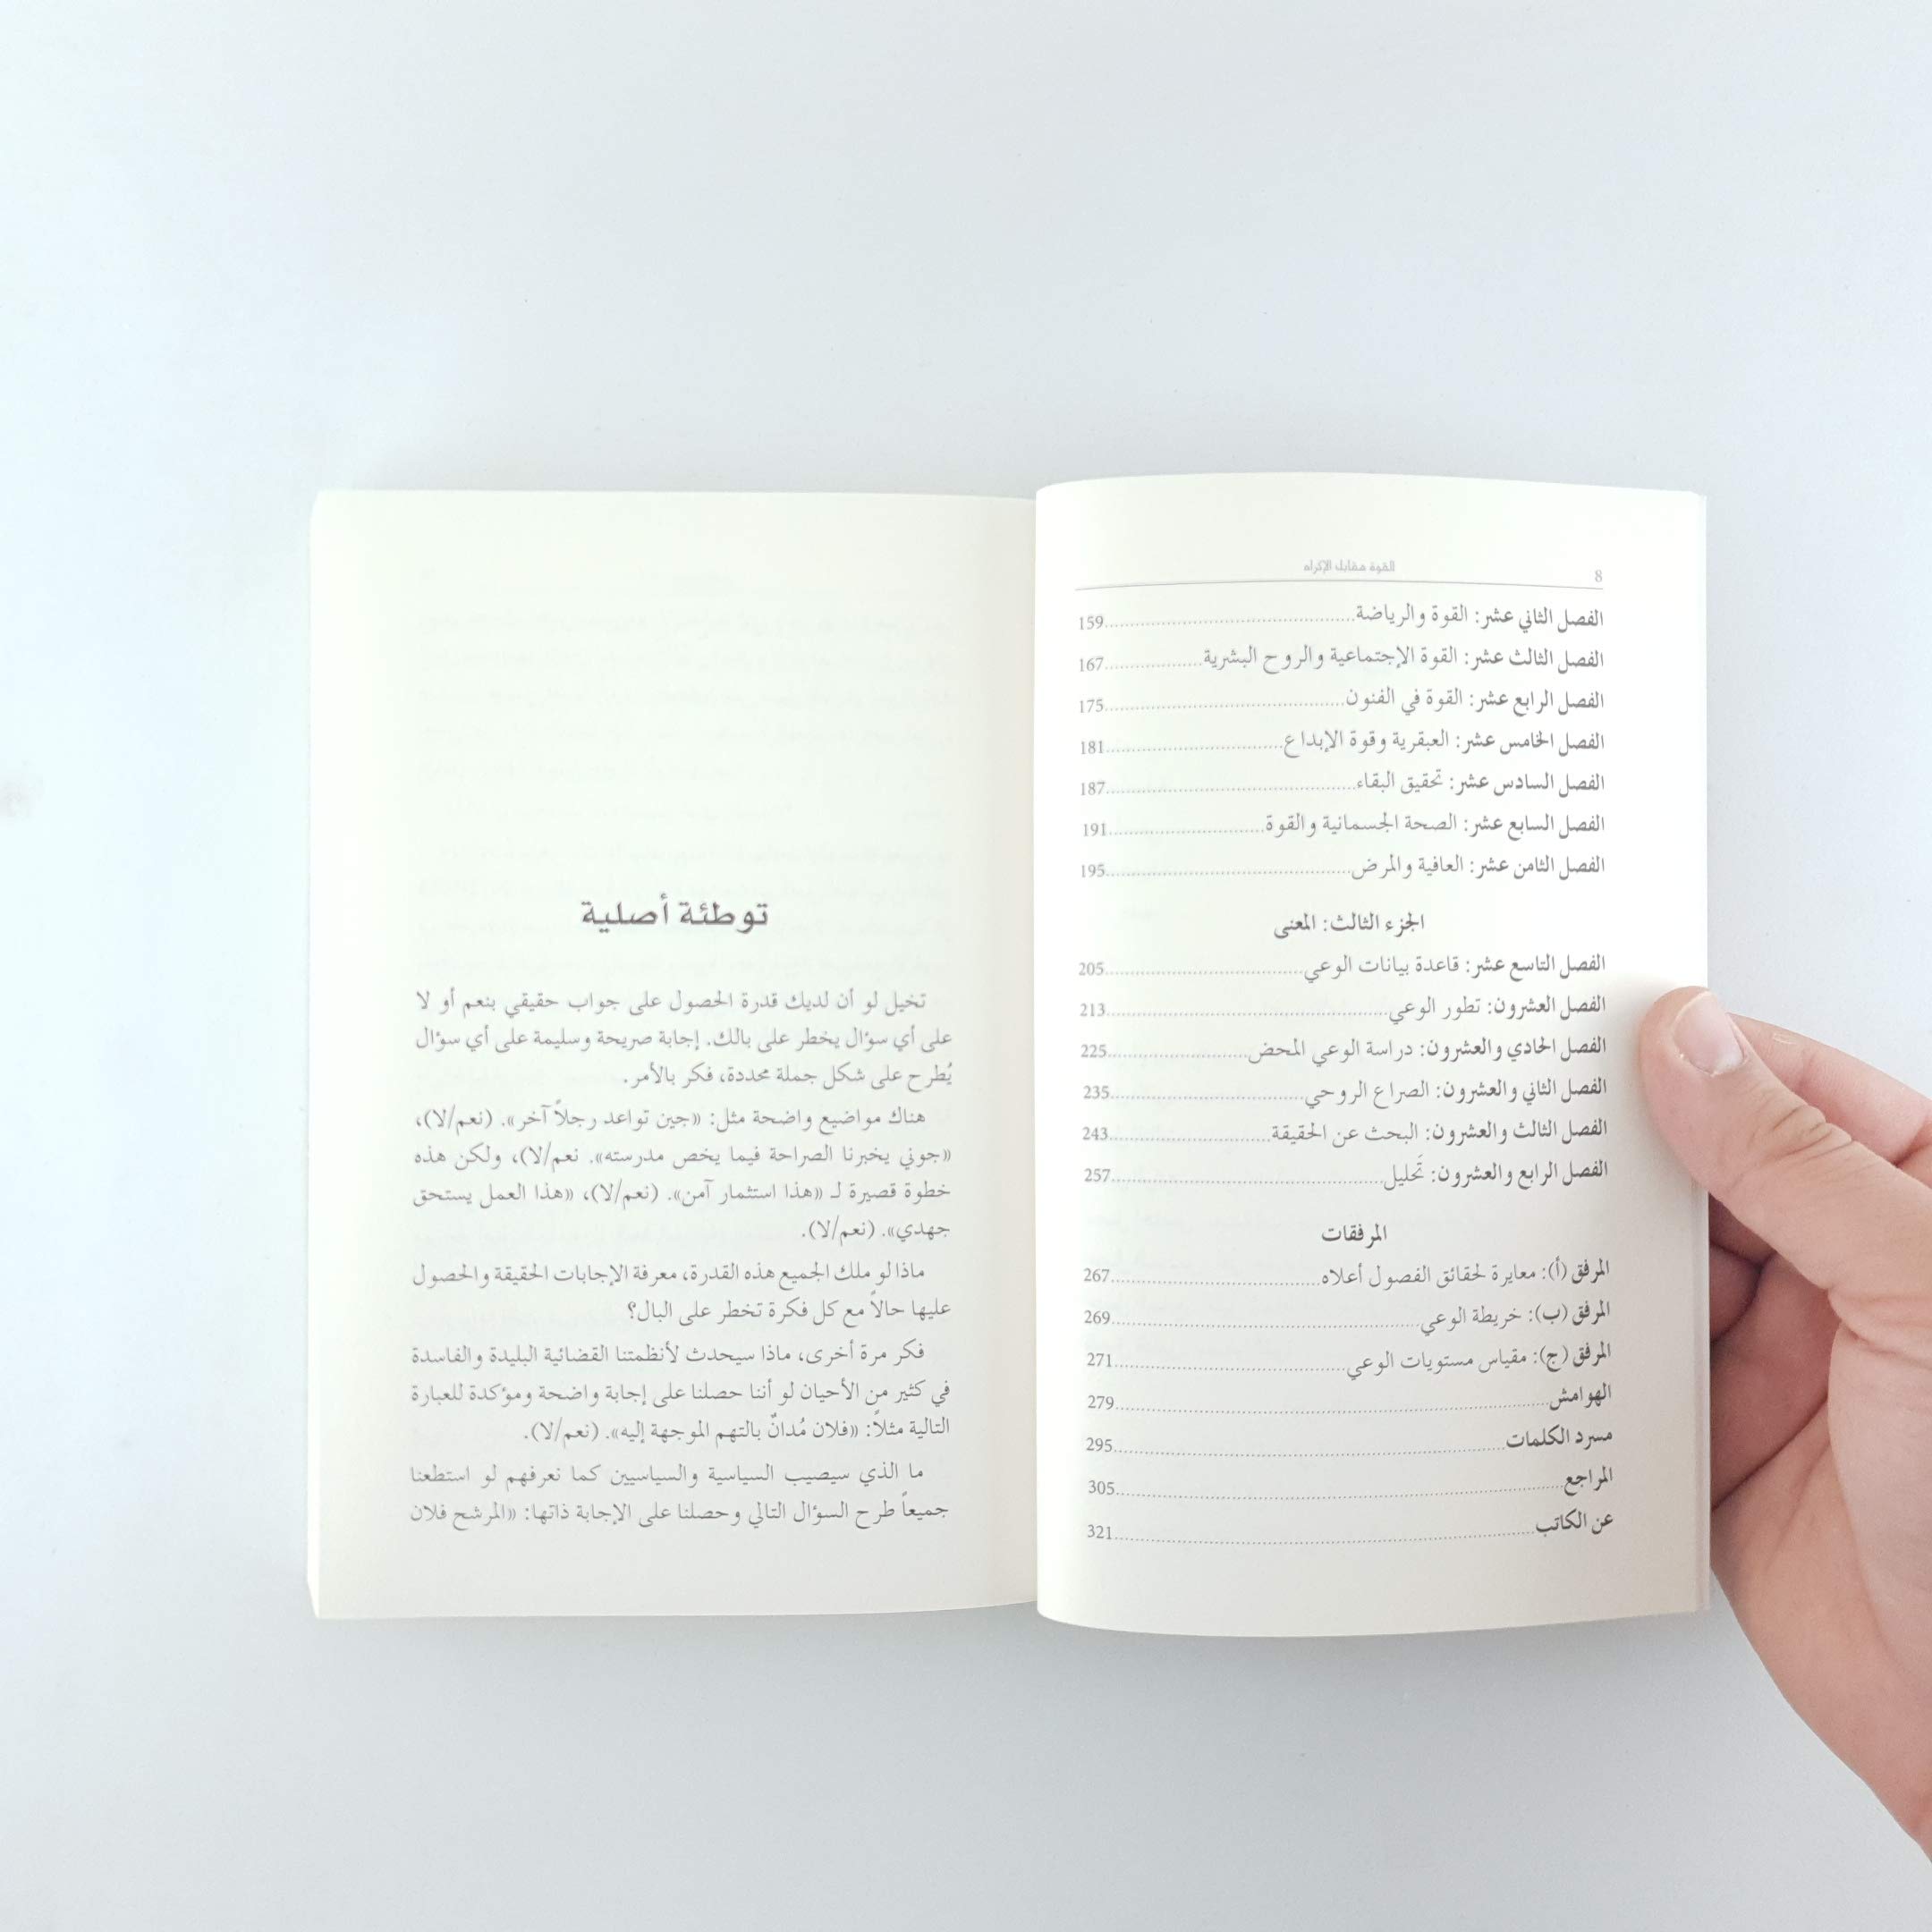 8
القوة مقابل الإكراه
الفصل الثاني عشر: القوة والرياضة................159
الفصل الثالث عشر: القوة الإجتماعية والروح البشرية................167
الفصل الرابع عشر: القوة في الفنون................175
الفصل الخامس عشر: العبقرية وقوة الإبداع................181
الفصل السادس عشر: تحقيق البقاء................187
الفصل السابع عشر: الصحة الجسمانية والقوة................191
الفصل الثامن عشر: العافية والمرض................195
الجزء الثالث: المعنى
الفصل التاسع عشر: قاعدة بيانات الوعي................205
الفصل العشرون: تطور الوعي................213
الفصل الحادي والعشرون: دراسة الوعي المحض................225
الفصل الثاني والعشرون: الصراع الروحي................235
الفصل الثالث والعشرون: البحث عن الحقيقة................243
الفصل الرابع والعشرون: تَحليل................257
المرفقات
المرفق (أ): معايرة لحقائق الفصول أعلاه................267
المرفق (ب): خريطة الوعي................269
المرفق (ج): مقياس مستويات الوعي................271
الهوامش................279
مسرد الكلمات................295
المراجع................305
عن الكاتب................321
توطئة أصلية
تخيل لو أن لديك قدرة الحصول على جواب حقيقي بنعم أو لا
على أي سؤال يخطر على بالك. إجابة صريحة وسليمة على أي سؤال
يُطرح على شكل جملة محددة، فكر بالأمر.
هناك مواضيع واضحة مثل: «جين تواعد رجلاً آخر». (نعم/لا)،
«جوني يخبرنا الصراحة فيما يخص مدرسته». نعم/لا)، ولكن هذه
خطوة قصيرة لـ «هذا استثمار آمن». (نعم/لا)، «هذا العمل يستحق
جهدي». (نعم/لا).
ماذا لو ملك الجميع هذه القدرة، معرفة الإجابات الحقيقة والحصول
عليها حالاً مع كل فكرة تخطر على البال؟
فكر مرة أخرى، ماذا سيحدث لأنظمتنا القضائية البليدة والفاسدة
في كثير من الأحيان لو أننا حصلنا على إجابة واضحة ومؤكدة للعبارة
التالية مثلاً: «فلان مُدانٌ بالتهم الموجهة إليه». (نعم/لا).
ما الذي سيصيب السياسية والسياسيين كما نعرفهم لو استطعنا
جميعاً طرح السؤال التالي وحصلنا على الإجابة ذاتها: «المرشح فلان